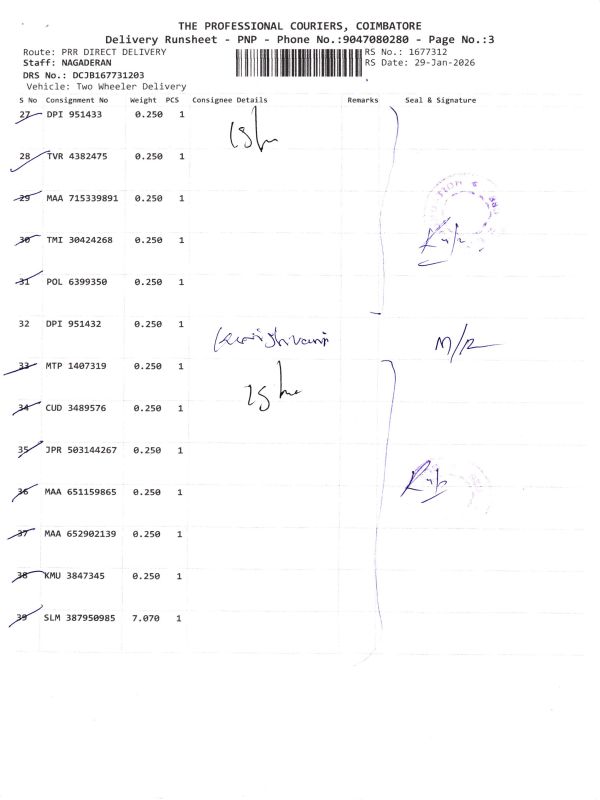 THE PROFESSIONAL COURIERS, COIMBATORE
Delivery Runsheet - PNP - Phone No.:9047080280 - Page No.:3
Route: PRR DIRECT DELIVERY RS No.: 1677312
Staff: NAGADERAN RS Date: 29-Jan-2026
DRS No.: DCJB167731203
Vehicle: Two Wheeler Delivery
S No Consignment No Weight PCS Consignee Details Remarks Seal & Signature
27 DPI 951433 0.250 1
28 TVR 4382475 0.250 1
29 MAA 715339891 0.250 1
30 TMI 30424268 0.250 1
31 POL 6399350 0.250 1
32 DPI 951432 0.250 1 M/R
33 MTP 1407319 0.250 1
34 CUD 3489576 0.250 1
35 JPR 503144267 0.250 1
36 MAA 651159865 0.250 1
37 MAA 652902139 0.250 1
38 KMU 3847345 0.250 1
39 SLM 387950985 7.070 1